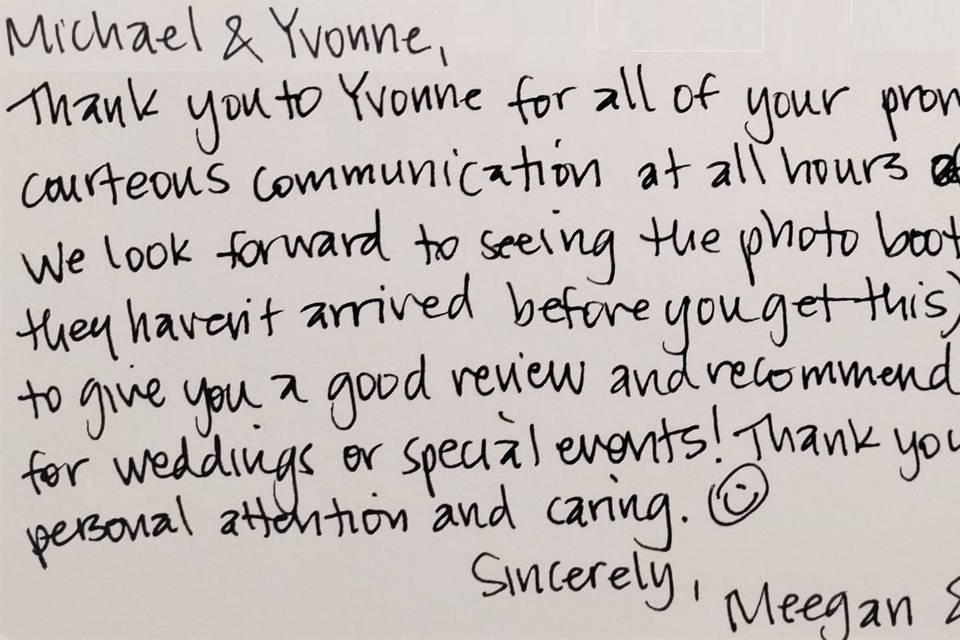 Michael & Yvonne,
Thank you to Yvonne for all of your
courteous communication at all hours
We look forward to seeing the photo
they haven't arrived before you get this)
to give you a good review and recommend
for weddings or special events! Thank you
personal attention and caring. ☺
Sincerely,
Meegan &